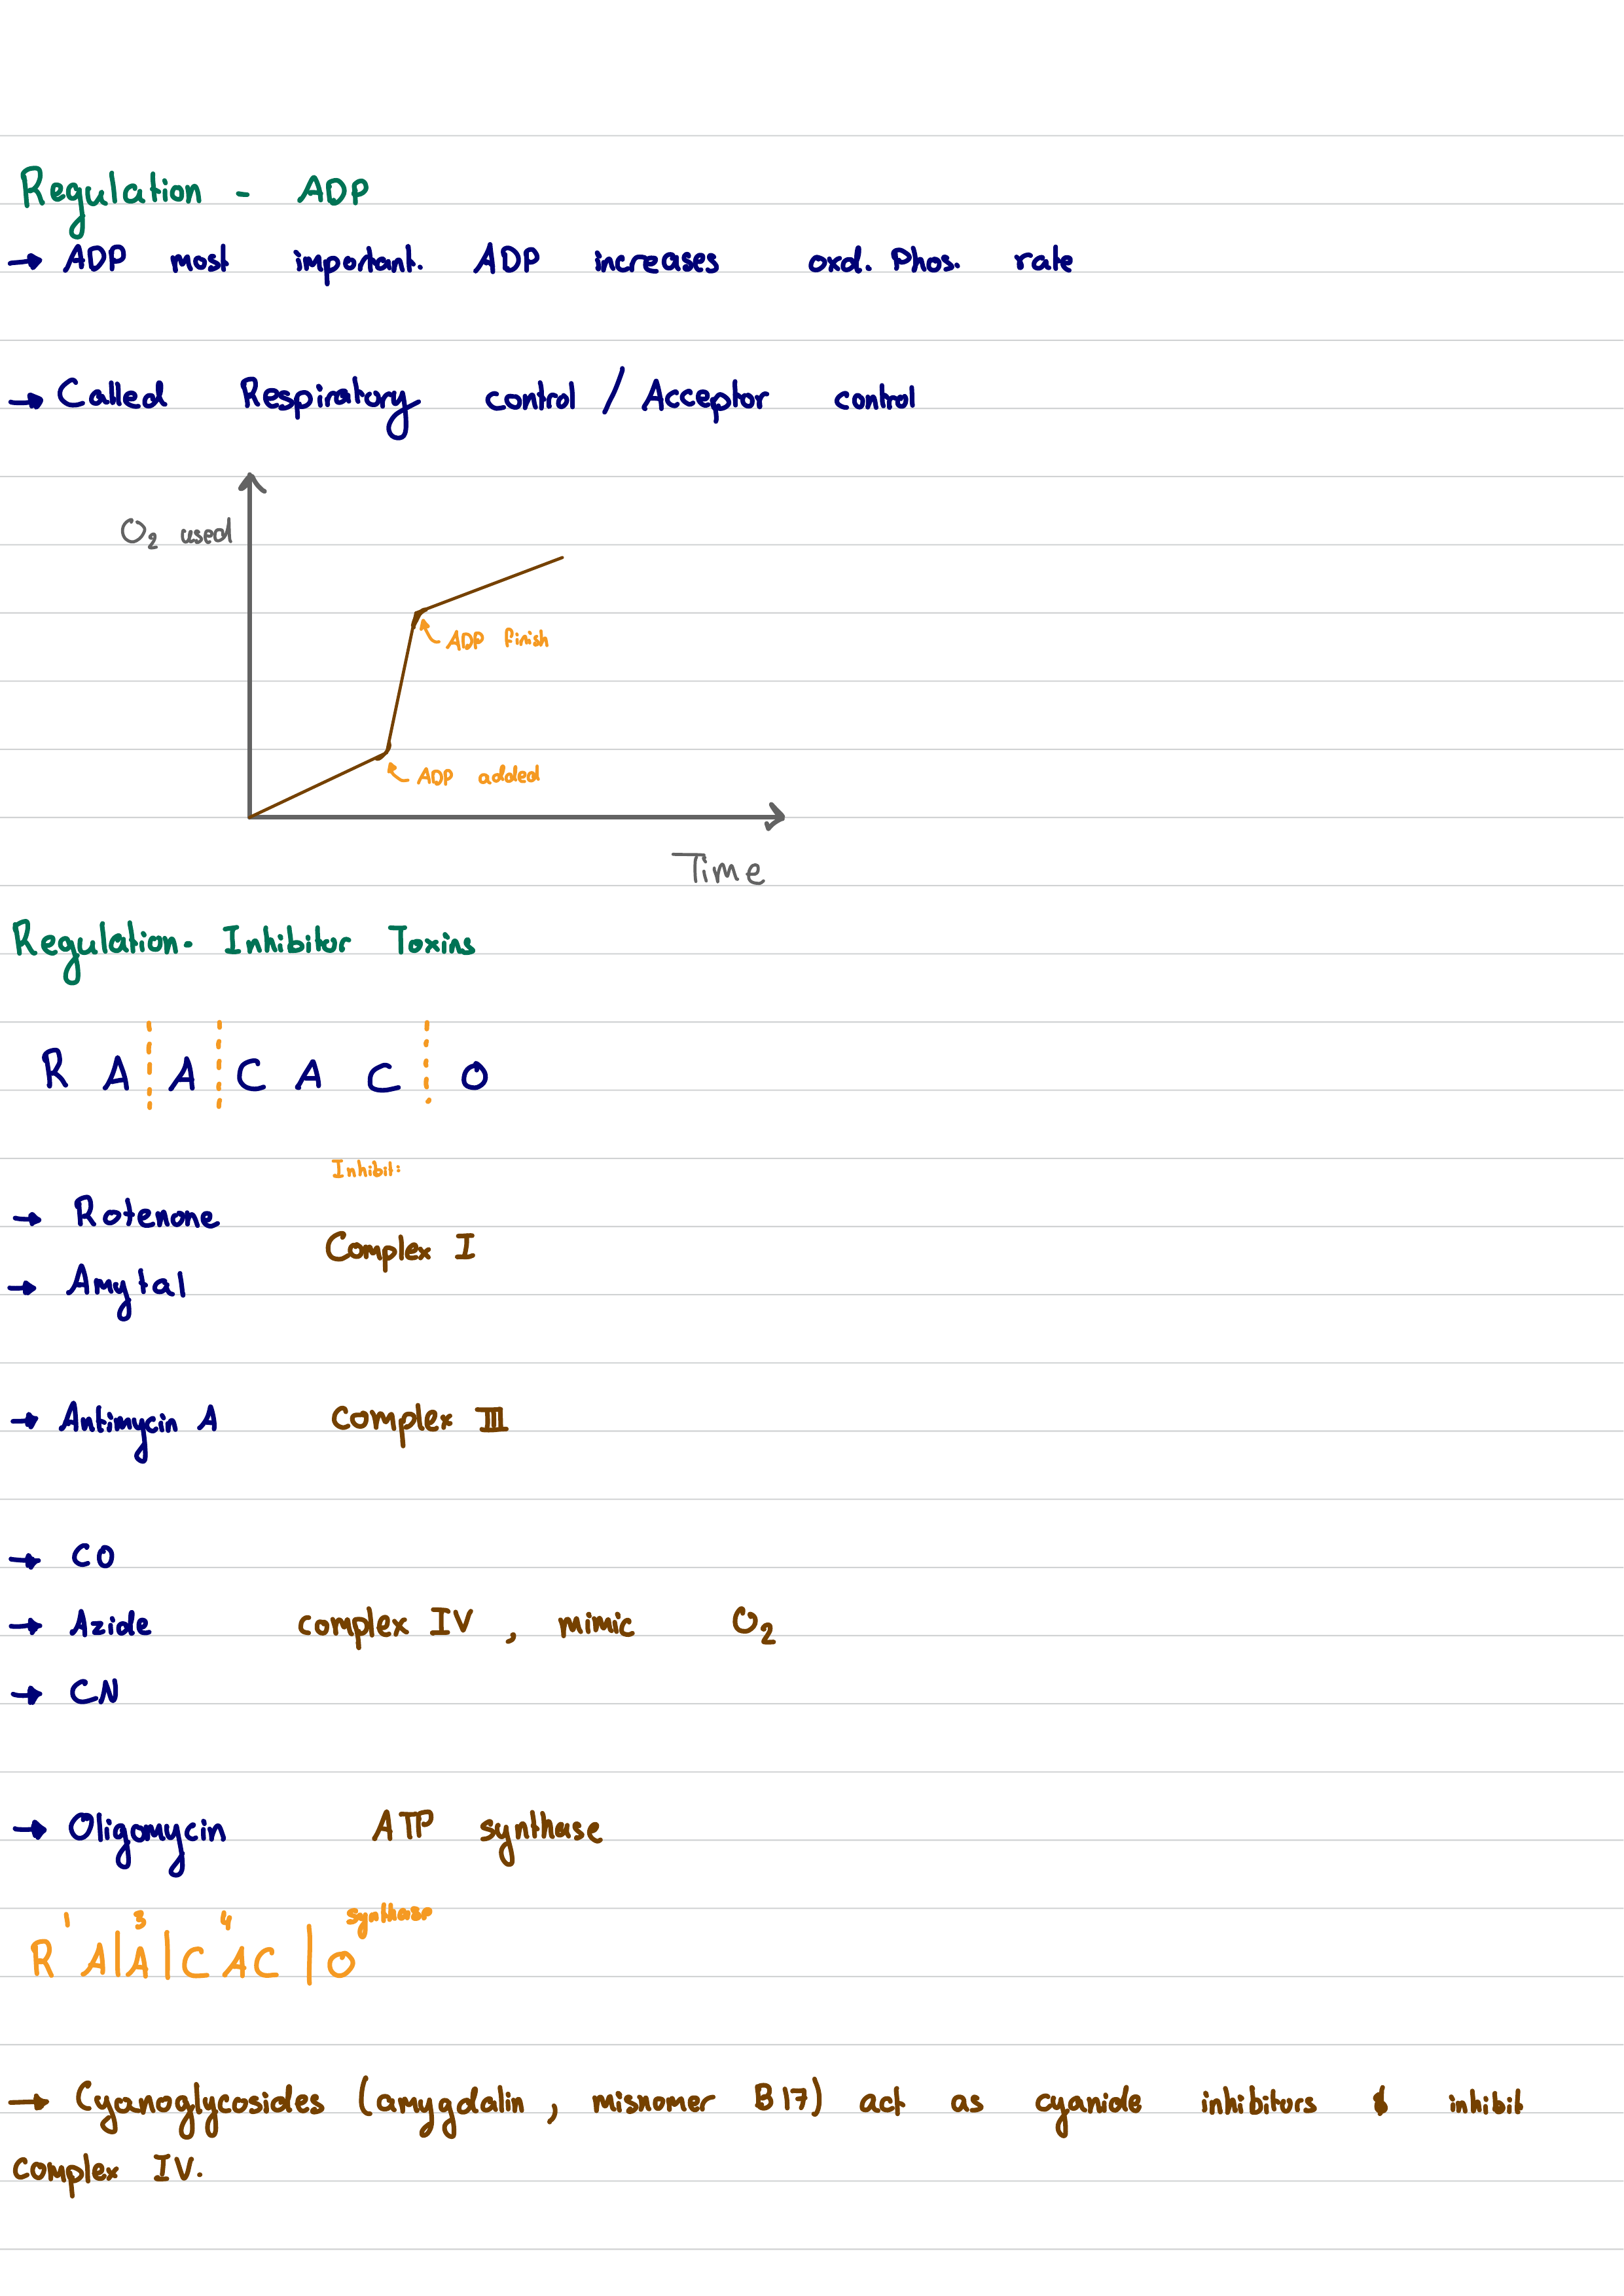 Regulation - ADP
→ ADP most important. ADP increases oxd. Phos. rate
→ Called Respiratory control / Acceptor control
O₂ used
ADP finish
ADP added
Time
Regulation- Inhibitor Toxins
R A ¦ A ¦ C A C ¦ O
Inhibit:
→ Rotenone
Complex I
→ Amytal
→ Antimycin A Complex III
→ CO
→ Azide complex IV , mimic O₂
→ CN
→ Oligomycin ATP synthase
1 3 4 synthase
R A|A|C A C |O
→ Cyanoglycosides (amygdalin, misnomer B17) act as cyanide inhibitors & inhibit
complex IV.